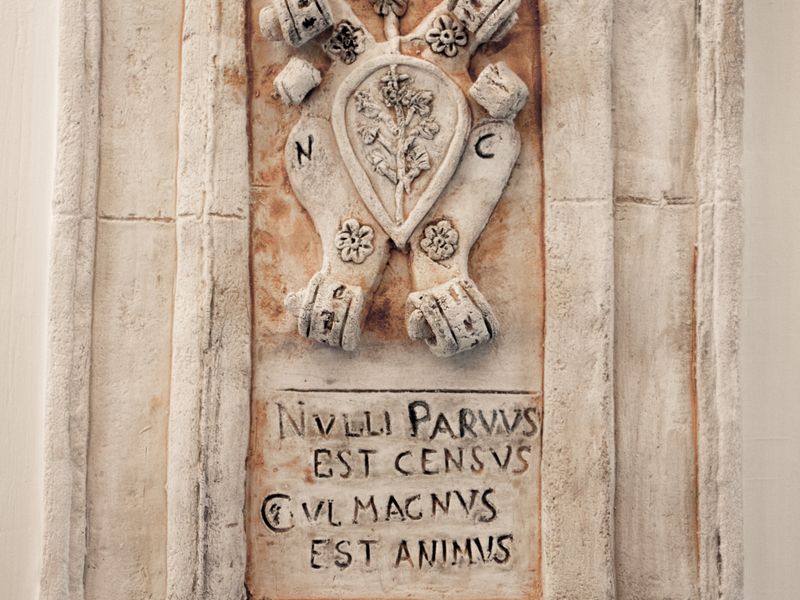 N C
NVLLI PARVVS
EST CENSVS
CVI MAGNVS
EST ANIMVS